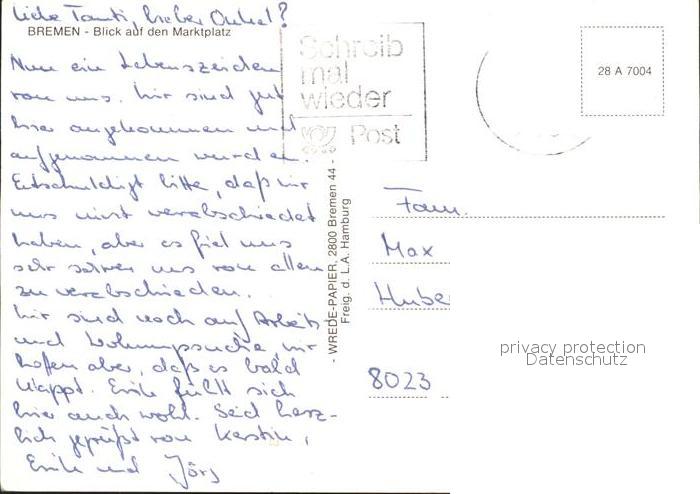 Liebe Tanti, lieber Onkel!
BREMEN - Blick auf den Marktplatz
Nun ein Lebenszeichen
von uns. Wir sind gut
hier angekommen und
aufgenommen worden.
Entschuldigt bitte, daß wir
uns nicht verabschiedet
haben, aber es fiel uns
sehr schwer uns von allem
zu verabschieden.
Wir sind noch auf Arbeits
und Wohnungssuche, wir
hoffen aber, daß es bald
klappt. Emile fühlt sich
hier auch wohl. Seid herz-
lich gegrüßt von Kerstin,
Emile und Jörg
Schreib
mal
wieder
Post
28 A 7004
- WREDE-PAPIER, 2800 Bremen 44 -
Freig. d. L.A. Hamburg
Fam.
Max
Hube
8023
privacy protection
Datenschutz